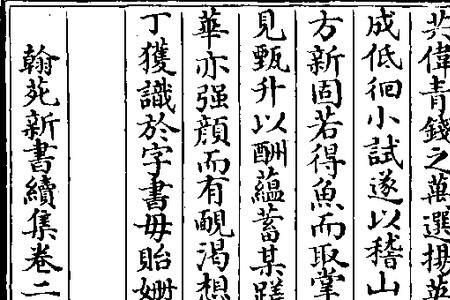 偉青錢之萬選搠英
成低徊小試遂以稽山
方新固若得魚而取掌
見甄升以酬蘊蓄某蹉
華亦强顔而有靦渴想
丁獲識於字書毋貽
翰苑新書續集卷二